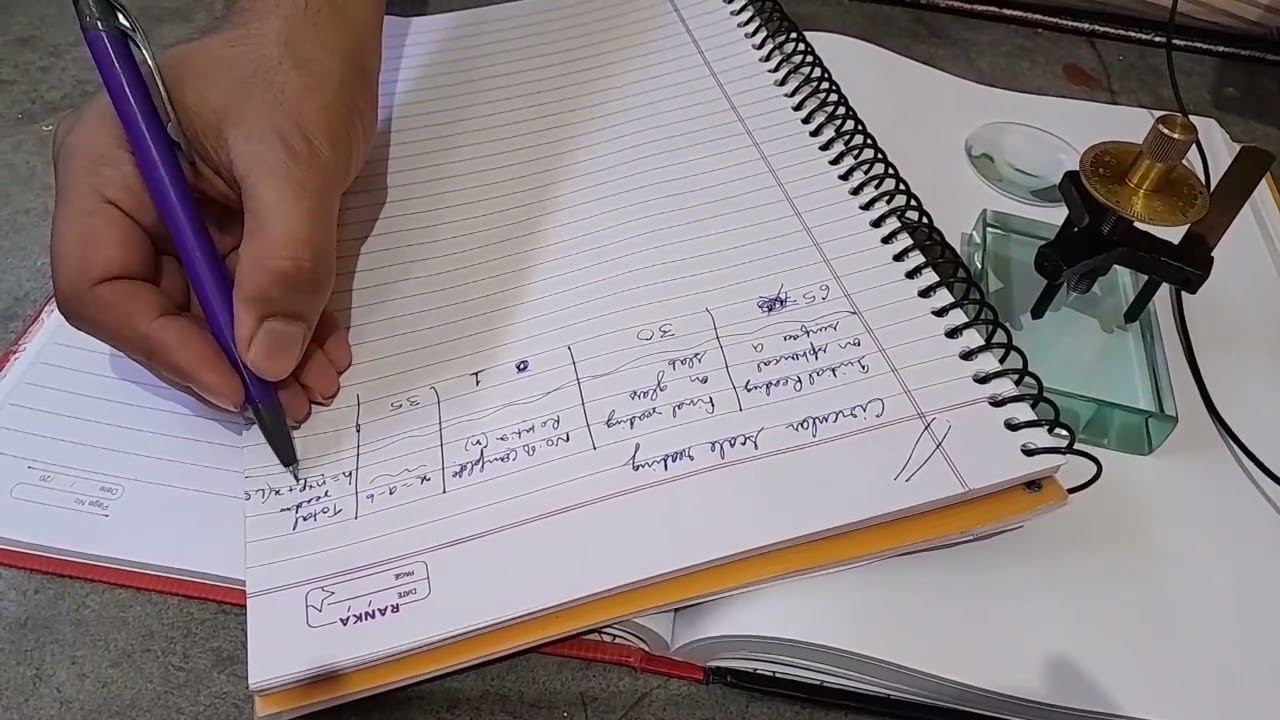 RANKA
DATE
PAGE
Circular scale reading
Initial Reading
on spherical
surface a
Final reading
on glass
slab
No. of complete
Rotation (n)
x = a - b
Total
h = n×p + x(L.C
65
30
1
35
Page No
Date / /20